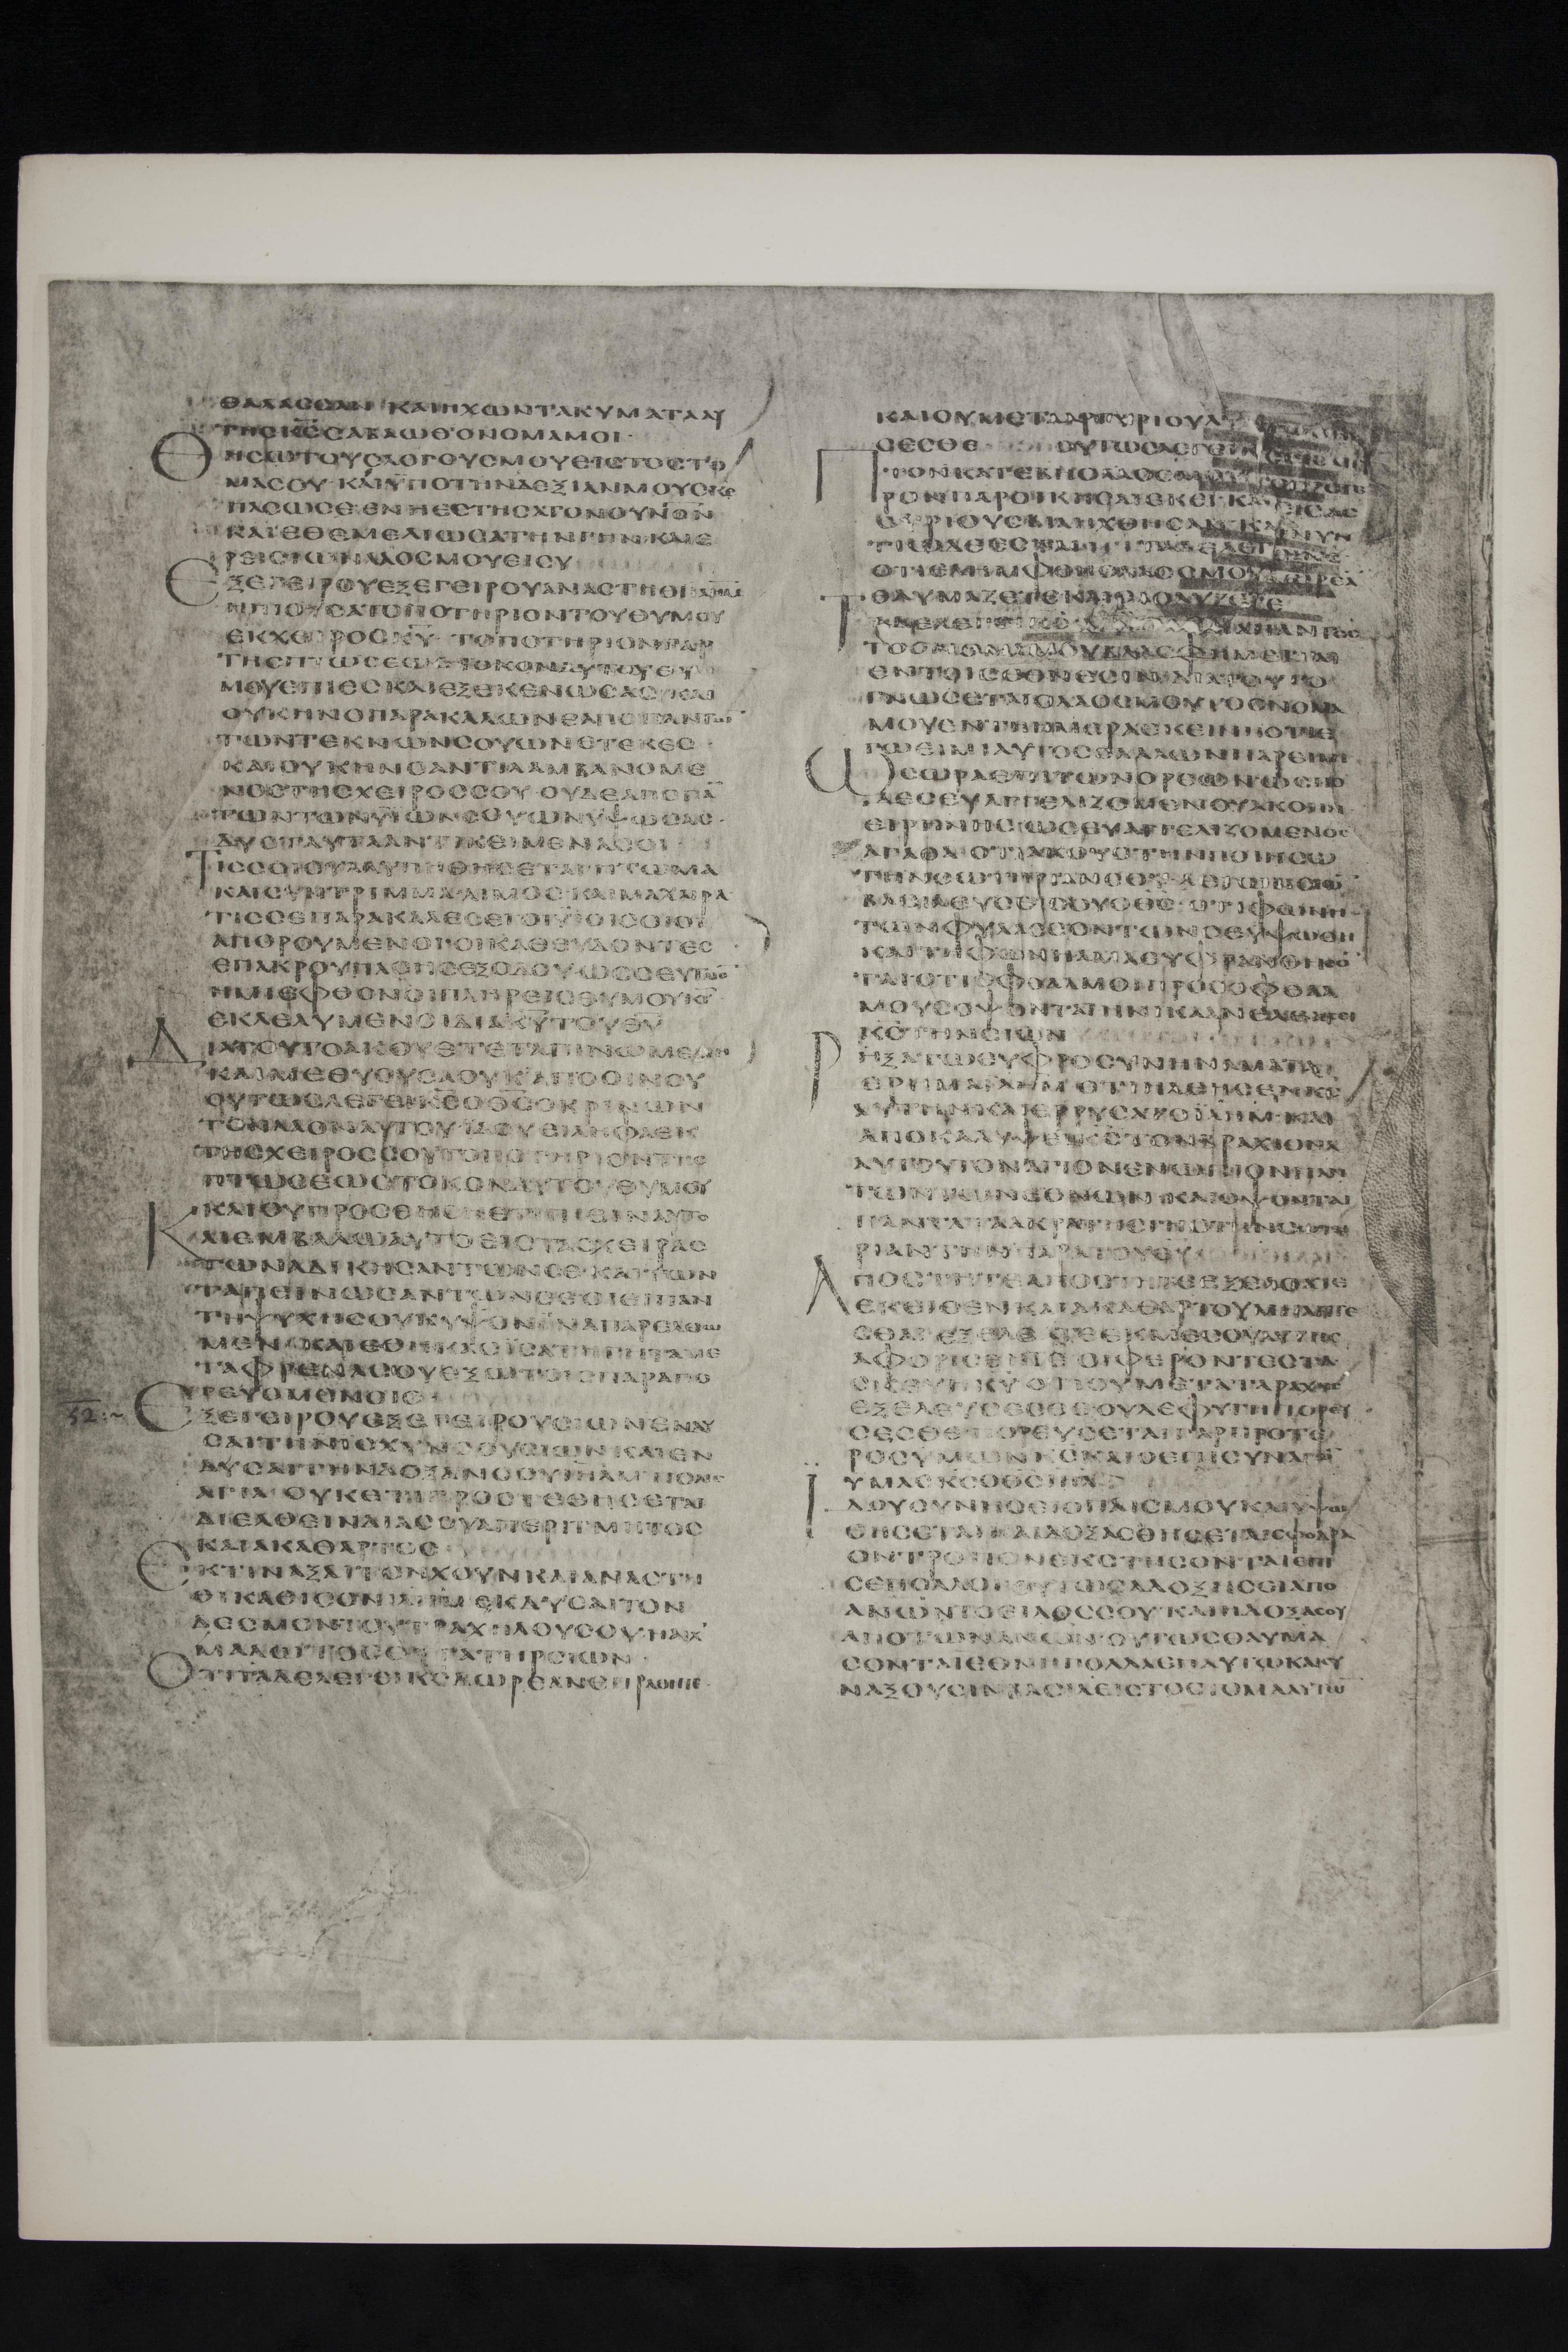 ΘΑΛΑϹϹΑΝ ΚΑΙΗΧΩΝΤΑΚΥΜΑΤΑΑΥ
ΤΗϹΚϹϹΑΒΑΩΘΟΝΟΜΑΜΟΙ·
ΘΗϹΩΤΟΥϹΛΟΓΟΥϹΜΟΥΕΙϹΤΟϹΤΟ
ΜΑϹΟΥ·ΚΑΙΫΠΟΤΗΝΔΕΞΙΑΝΜΟΥϹΚΕ
ΠΑϹΩϹΕΕΝΗΕϹΤΗϹΑΤΟΝΟΥΝΟΝ
ΚΑΙΕΘΕΜΕΛΙΩϹΑΤΗΝΓΗΝ·ΚΑΙΕ
ΡΕΙϹΙΩΝΛΑΟϹΜΟΥΕΙϹΥ
ΕΞΕΓΕΙΡΟΥΕΞΕΓΕΙΡΟΥΑΝΑϹΤΗΘΙ
ΗΠΙΟΥϹΑΤΟΠΟΤΗΡΙΟΝΤΟΥΘΥΜΟΥ
ΕΚΧΕΙΡΟϹΚΥ·ΤΟΠΟΤΗΡΙΟΝΓΑΡ
ΤΗϹΠΤΩϹΕΩϹΤΟΚΟΝΔΥΤΟΥΘΥ
ΜΟΥΕΠΙΕϹΚΑΙΕΞΕΚΕΝΩϹΑϹ·ΚΑΙ
ΟΥΚΗΝΟΠΑΡΑΚΑΛΩΝϹΕΑΠΟΠΑΝΤΩ
ΤΩΝΤΕΚΝΩΝϹΟΥΩΝΕΤΕΚΕϹ·
ΚΑΙΟΥΚΗΝΟΑΝΤΙΛΑΜΒΑΝΟΜΕ
ΝΟϹΤΗϹΧΕΙΡΟϹϹΟΥ·ΟΥΔΕΑΠΟΠΑ
ΤΩΝΤΩΝΥΙΩΝϹΟΥΩΝΥΨΩϹΑϹ·
ΔΥΟΤΑΥΤΑΑΝΤΙΚΕΙΜΕΝΑϹΟΙ
ΤΙϹϹΟΙϹΥΛΛΥΠΗΘΗϹΕΤΑΙΠΤΩΜΑ
ΚΑΙϹΥΝΤΡΙΜΜΑ·ΛΙΜΟϹ·ΚΑΙΜΑΧΑΙΡΑ
ΤΙϹϹΕΠΑΡΑΚΑΛΕϹΕΙ·ΟΙΥΙΟΙϹΟΙΟΙ
ΑΠΟΡΟΥΜΕΝΟΙΟΙΚΑΘΕΥΔΟΝΤΕϹ
ΕΠΑΚΡΟΥΠΑϹΗϹΕΞΟΔΟΥΩϹϹΕΥΤΛΙΟ
ΗΜΙΕΦΘΟΝΟΙΠΛΗΡΕΙϹΘΥΜΟΥΚΥ
ΕΚΛΕΛΥΜΕΝΟΙΔΙΑΚΥΤΟΥΘΥ
ΔΙΑΤΟΥΤΟΑΚΟΥΕΤΕΤΑΠΙΝΩΜΕΝΗ
ΚΑΙΜΕΘΥΟΥϹΑΟΥΚΑΠΟΟΙΝΟΥ
ΟΥΤΩϹΛΕΓΕΙΚϹΟΘϹΟΚΡΙΝΩΝ
ΤΟΝΛΑΟΝΑΥΤΟΥ·ΙΔΟΥΕΙΛΗΦΑΕΚ
ΤΗϹΧΕΙΡΟϹϹΟΥΤΟΠΟΤΗΡΙΟΝΤΗϹ
ΠΤΩϹΕΩϹΤΟΚΟΝΔΥΤΟΥΘΥΜΟΥ
ΚΑΙΟΥΠΡΟϹΘΗϹΗΕΤΙΠΙΕΙΝΑΥΤΟ
ΚΑΙΕΜΒΑΛΩΑΥΤΟΕΙϹΤΑϹΧΕΙΡΑϹ
ΤΩΝΑΔΙΚΗϹΑΝΤΩΝϹΕ·ΚΑΙΤΩΝ
ΤΑΠΕΙΝΩϹΑΝΤΩΝϹΕΟΙΕΙΠΑΝ
ΤΗΨΥΧΗϹΟΥΚΥΨΟΝΙΝΑΠΑΡΕΛΘΩ
ΜΕΝ·ΚΑΙΕΘΗΚΑϹΙϹΑΤΗΓΗΤΑΜΕ
ΤΑΦΡΕΝΑϹΟΥΕΞΩΤΟΙϹΠΑΡΑΠΟ
ΡΕΥΟΜΕΝΟΙϹ
52
ΕΞΕΓΕΙΡΟΥΕΞΕΓΕΙΡΟΥϹΙΩΝΕΝΔΥ
ϹΑΙΤΗΝΙϹΧΥΝϹΟΥϹΙΩΝ·ΚΑΙΕΝ
ΔΥϹΑΙΤΗΝΔΟΞΑΝϹΟΥΙΛΗΜΠΟΛΙϹ
ΑΓΙΑ·ΟΥΚΕΤΙΠΡΟϹΤΕΘΗϹΕΤΑΙ
ΔΙΕΛΘΕΙΝΔΙΑϹΟΥΑΠΕΡΙΤΜΗΤΟϹ
ΚΑΙΑΚΑΘΑΡΤΟϹ
ΕΚΤΙΝΑΞΑΙΤΟΝΧΟΥΝΚΑΙΑΝΑϹΤΗ
ΘΙΚΑΘΙϹΟΝΙΛΗΜΕΚΔΥϹΑΙΤΟΝ
ΔΕϹΜΟΝΤΟΥΤΡΑΧΗΛΟΥϹΟΥΗΑΙΧ
ΜΑΛΩΤΟϹΘΥΓΑΤΗΡϹΙΩΝ·
ΟΤΙΤΑΔΕΛΕΓΕΙΚϹΔΩΡΕΑΝΕΠΡΑΘΗΤΕ·
ΚΑΙΟΥΜΕΤΑΑΡΓΥΡΙΟΥΛΥ
ϹΕϹΘΕ ΟΥΤΩϹΛΕΓΕΙ
ΤΟΝΚΑΤΕΒΗΟΛΑΟϹΜΟΥ
ΡΟΝΠΑΡΟΙΚΗϹΑΙΕΚΕΙ·ΚΑΙ
ϹϹΥΡΙΟΥϹΒΙΑΗΧΘΗϹΑΝ·ΚΑΙ
ΤΙΩΔΕΕϹΤΑΙ
ΟΤΙΕΛΗΜΦΘΗΟΛΑΟϹΜΟΥΔΩΡΕΑ
ΘΑΥΜΑΖΕΤΕΚΑΙΟΛΟΛΥΖΕΤΕ
ΤΑΔΕΛΕΓΕΙ
ΤΟϹΤΟΟΝΟΜΑΜΟΥΒΛΑϹΦΗΜΕΙΤΑΙ
ΕΝΤΟΙϹΕΘΝΕϹΙΝ·ΔΙΑΤΟΥΤΟ
ΓΝΩϹΕΤΑΙΟΛΑΟϹΜΟΥΤΟΟΝΟΜΑ
ΜΟΥΕΝΤΗΗΜΕΡΑΕΚΕΙΝΗΟΤΙΕ
ΓΩΕΙΜΙΑΥΤΟϹΟΛΑΛΩΝΠΑΡΕΙΜΙ
ΩϹΩΡΑΕΠΙΤΩΝΟΡΕΩΝΩϹΠΟ
ΔΕϹΕΥΑΓΓΕΛΙΖΟΜΕΝΟΥΑΚΟΗΝ
ΕΙΡΗΝΗϹΩϹΕΥΑΓΓΕΛΙΖΟΜΕΝΟϹ
ΑΓΑΘΑ·ΟΤΙΑΚΟΥϹΤΗΝΠΟΙΗϹΩ
ΤΗΝϹΩΤΗΡΙΑΝϹΟΥ·ΛΕΓΩΝϹΙΩ
ΒΑϹΙΛΕΥϹΕΙϹΟΥΟΘϹ·ΟΤΙΦΩΝΗ
ΤΩΝΦΥΛΑϹϹΟΝΤΩΝϹΕΥΨΩΘΗ
ΚΑΙΤΗΦΩΝΗΑΜΑΕΥΦΡΑΝΘΗϹΟ
ΤΑΙΟΤΙΟΦΘΑΛΜΟΙΠΡΟϹΟΦΘΑΛ
ΜΟΥϹΟΨΟΝΤΑΙΗΝΙΚΑΑΝΕΛΕΗϹΗ
ΚϹΤΗΝϹΙΩΝ
ΡΗΞΑΤΩΕΥΦΡΟϹΥΝΗΝΑΜΑΤΑ
ΕΡΗΜΑΙΛΗΜ·ΟΤΙΗΛΕΗϹΕΝΚϹ
ΑΥΤΗΝ·ΚΑΙΕΡΡΥϹΑΤΟΙΛΗΜ·ΚΑΙ
ΑΠΟΚΑΛΥΨΕΙΚϹΤΟΝΒΡΑΧΙΟΝΑ
ΑΥΤΟΥΤΟΝΑΓΙΟΝΕΝΩΠΙΟΝΠΑΝ
ΤΩΝΤΩΝΕΘΝΩΝ·ΚΑΙΟΨΟΝΤΑΙ
ΠΑΝΤΑΤΑΑΚΡΑΤΗϹΓΗϹΤΗΝϹΩΤΗ
ΡΙΑΝΤΗΝΠΑΡΑΤΟΥΘΥ
ΑΠΟϹΤΗΤΕΑΠΟϹΤΗΤΕΕΞΕΛΘΑΤΕ
ΕΚΕΙΘΕΝΚΑΙΑΚΑΘΑΡΤΟΥΜΗΑΠΤΕ
ϹΘΑΙ·ΕΞΕΛΘΕΤΕΕΚΜΕϹΟΥΑΥΤΗϹ
ΑΦΟΡΙϹΘΗΤΕΟΙΦΕΡΟΝΤΕϹΤΑ
ϹΚΕΥΗΚΥ·ΟΤΙΟΥΜΕΤΑΤΑΡΑΧΗϹ
ΕΞΕΛΕΥϹΕϹΘΕΟΥΔΕΦΥΓΗΠΟΡΕΥ
ϹΕϹΘΕΠΟΡΕΥϹΕΤΑΙΓΑΡΠΡΟΤΕ
ΡΟϹΥΜΩΝΚϹΚΑΙΟΕΠΙϹΥΝΑΓΩ
ΥΜΑϹΚϹΟΘϹΙΗΛ
ΙΔΟΥϹΥΝΗϹΕΙΟΠΑΙϹΜΟΥΚΑΙΥΨΩ
ΘΗϹΕΤΑΙΚΑΙΔΟΞΑϹΘΗϹΕΤΑΙϹΦΟΔΡΑ
ΟΝΤΡΟΠΟΝΕΚϹΤΗϹΟΝΤΑΙΕΠΙ
ϹΕΠΟΛΛΟΙΟΥΤΩϹΑΔΟΞΗϹΕΙΑΠΟ
ΑΝΩΝΤΟΕΙΔΟϹϹΟΥ·ΚΑΙΗΔΟΞΑϹΟΥ
ΑΠΟΤΩΝΑΝΩΝ·ΟΥΤΩϹΘΑΥΜΑ
ϹΟΝΤΑΙΕΘΝΗΠΟΛΛΑΕΠΑΥΤΩΚΑΙϹΥ
ΝΑΞΟΥϹΙΝΒΑϹΙΛΕΙϹΤΟϹΤΟΜΑΑΥΤΩ